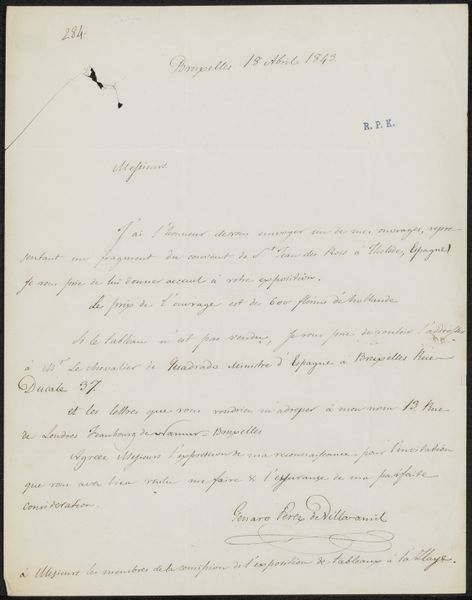 284.
Bruxelles 18 Abril 1843.
R. P. K.
Messieurs.
J'ai l'honneur de vous envoyer un de mes ouvrages, repre
sentant un fragment du couvent de St Jean des Rois à Tholède, (Espagne)
Je vous prie de lui donner acceuil à votre exposition.
Le prix de l'ouvrage est de 600 florins de hollande
Si le tableau n'est pas vendu, Je vous prie de vouloir l'addresser
à Mr Le chevalier de Quadrado Ministre d'Espagne à Bruxelles Rue
Ducale 37.
et les lettres que vous voudriez m'adresser à mon nom 13 Rue
de Londres Feaubourg de Namur = Bruxelles
Agréee Messieurs l'expression de ma reconnaissance pour l'invitation
que vous avez bien voulu me faire & l'assurance de ma parfaite
consideration.
Genaro Perez de Villa-amil
à Messieurs les membres de la comission de l'exposition de tableaux à la Haye.